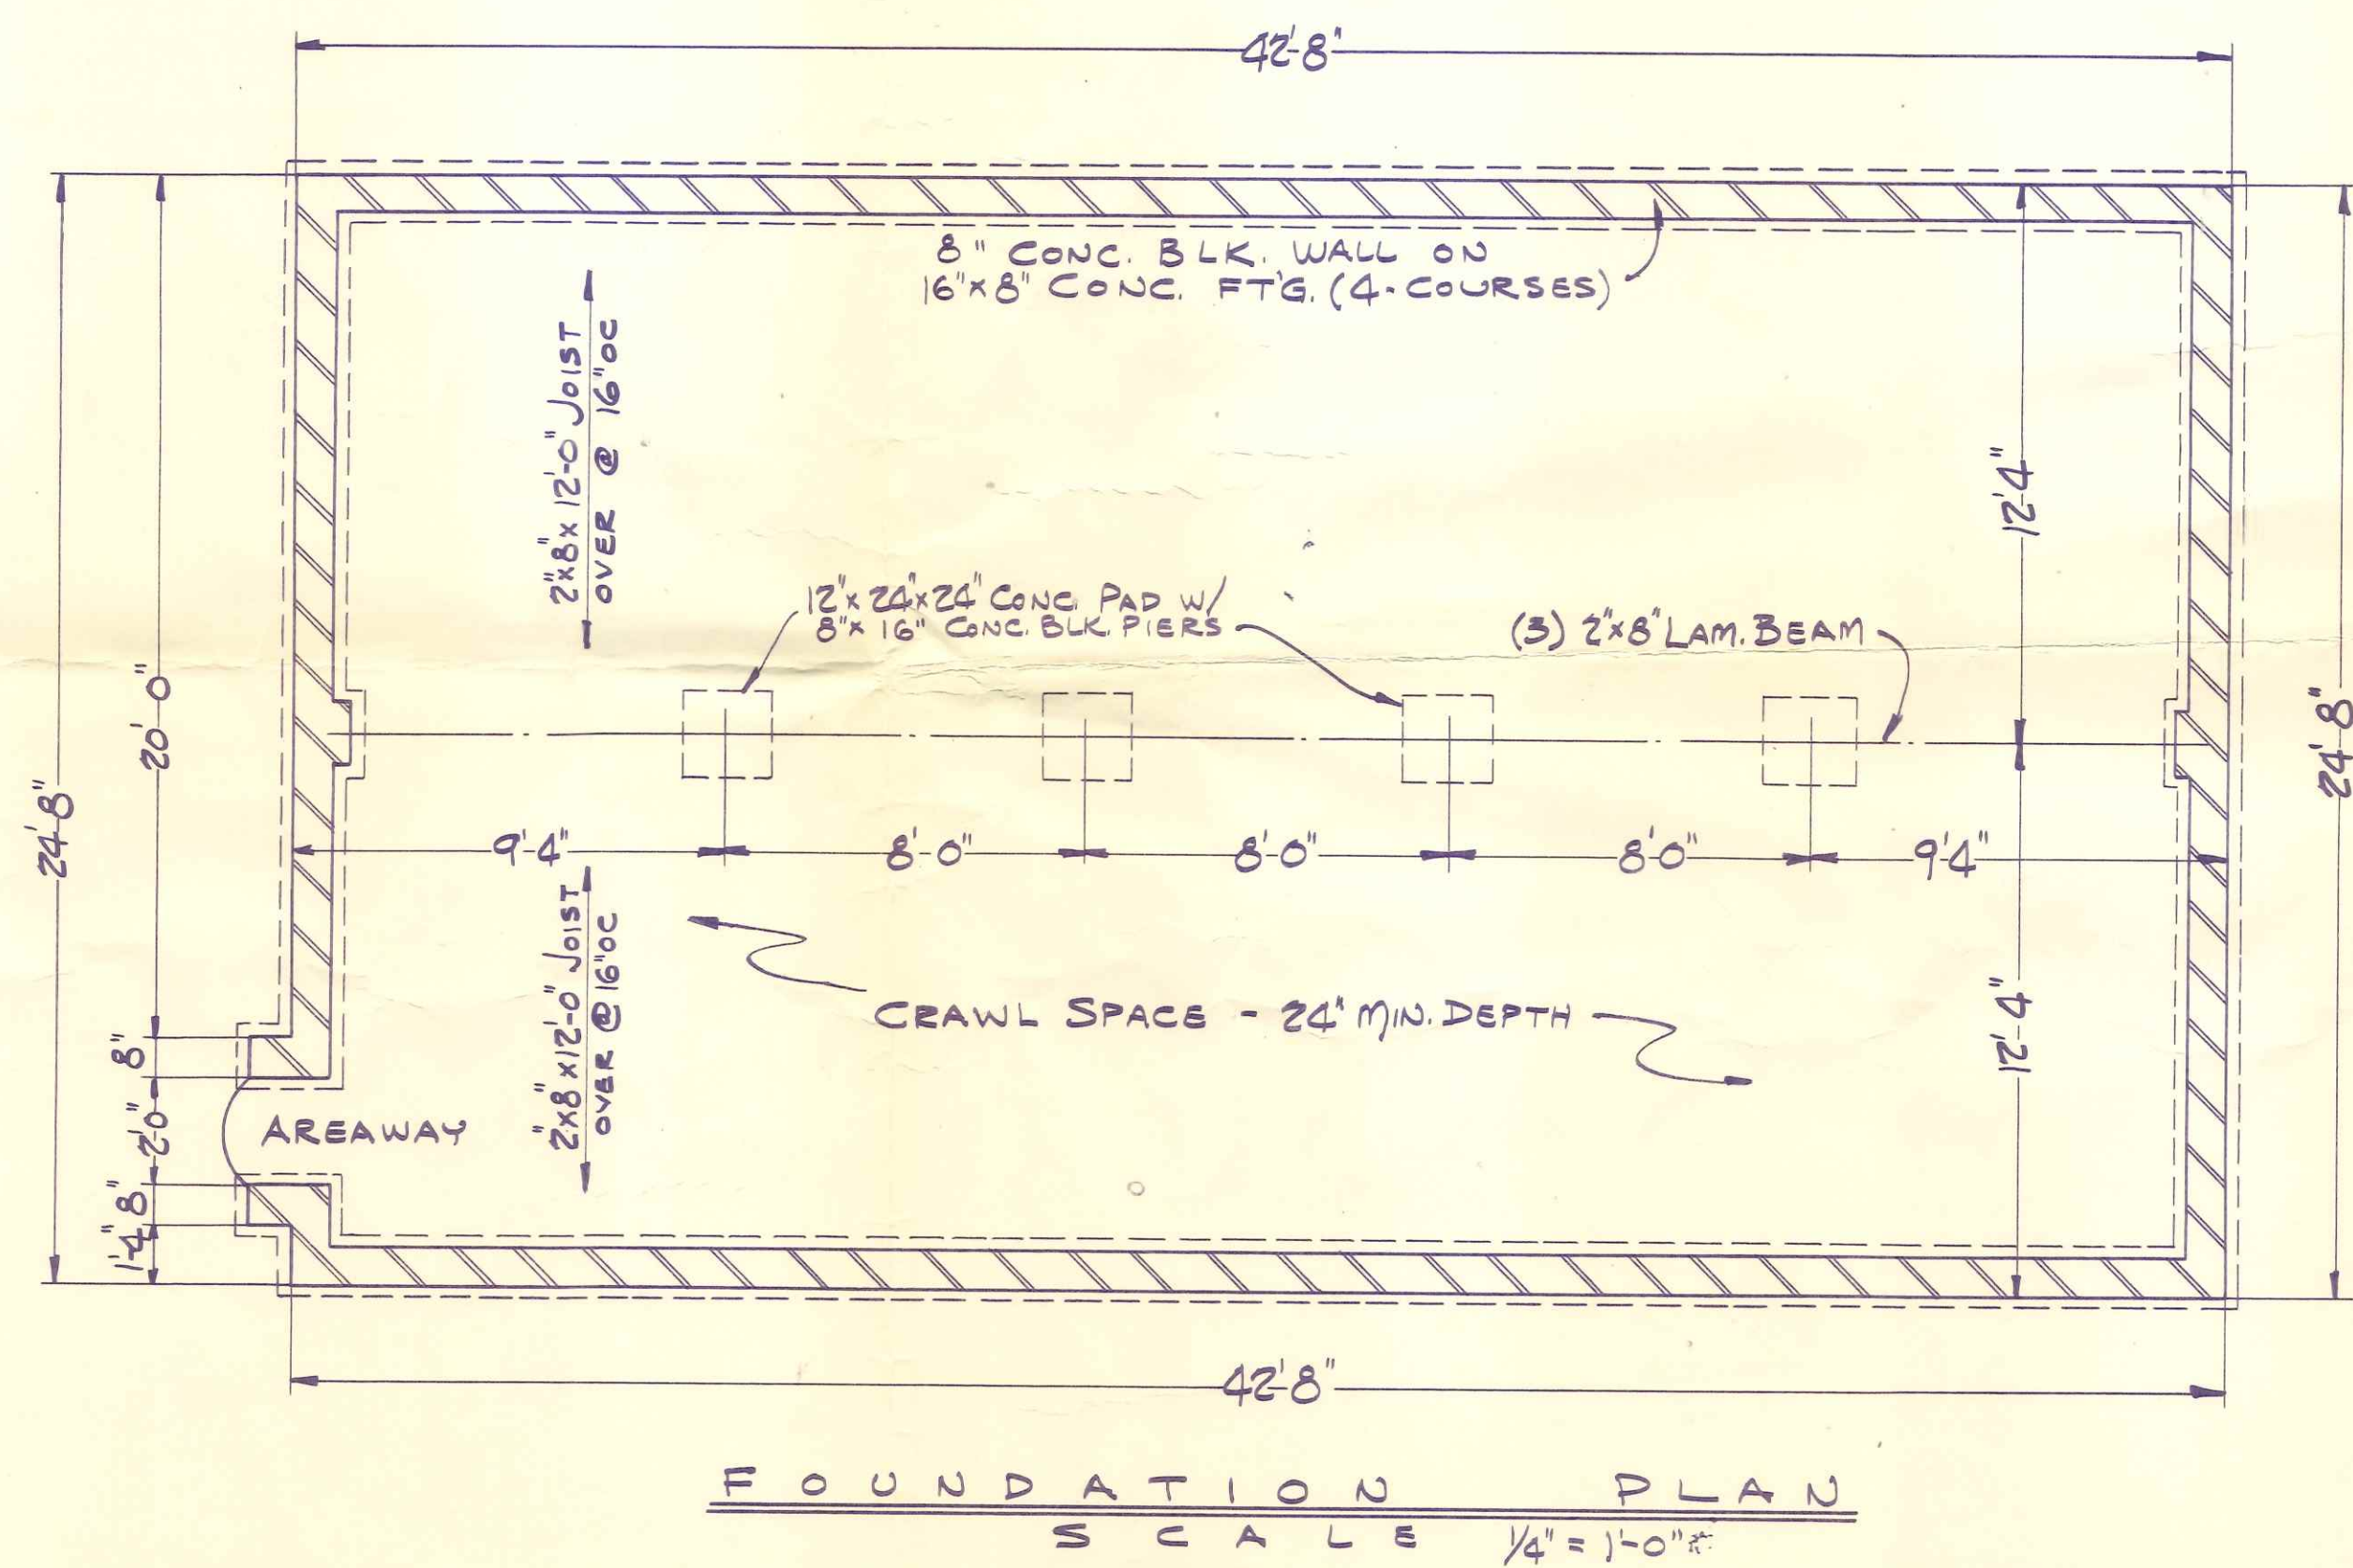 42'-8"
8" CONC. BLK. WALL ON
16"x8" CONC. FT'G. (4-COURSES)
2"x8"x12'-0" JOIST
OVER @ 16"OC
12'-4"
12"x24"x24" CONC. PAD W/
8"x16" CONC. BLK. PIERS
(3) 2"x8" LAM. BEAM
20'-0"
24'-8"
24'-8"
9'-4"
8'-0"
8'-0"
8'-0"
9'-4"
2"x8"x12'-0" JOIST
OVER @ 16"OC
CRAWL SPACE - 24" MIN. DEPTH
12'-4"
8"
2'-0"
AREAWAY
8"
1'-4"
42'-8"
FOUNDATION PLAN
SCALE 1/4" = 1'-0"